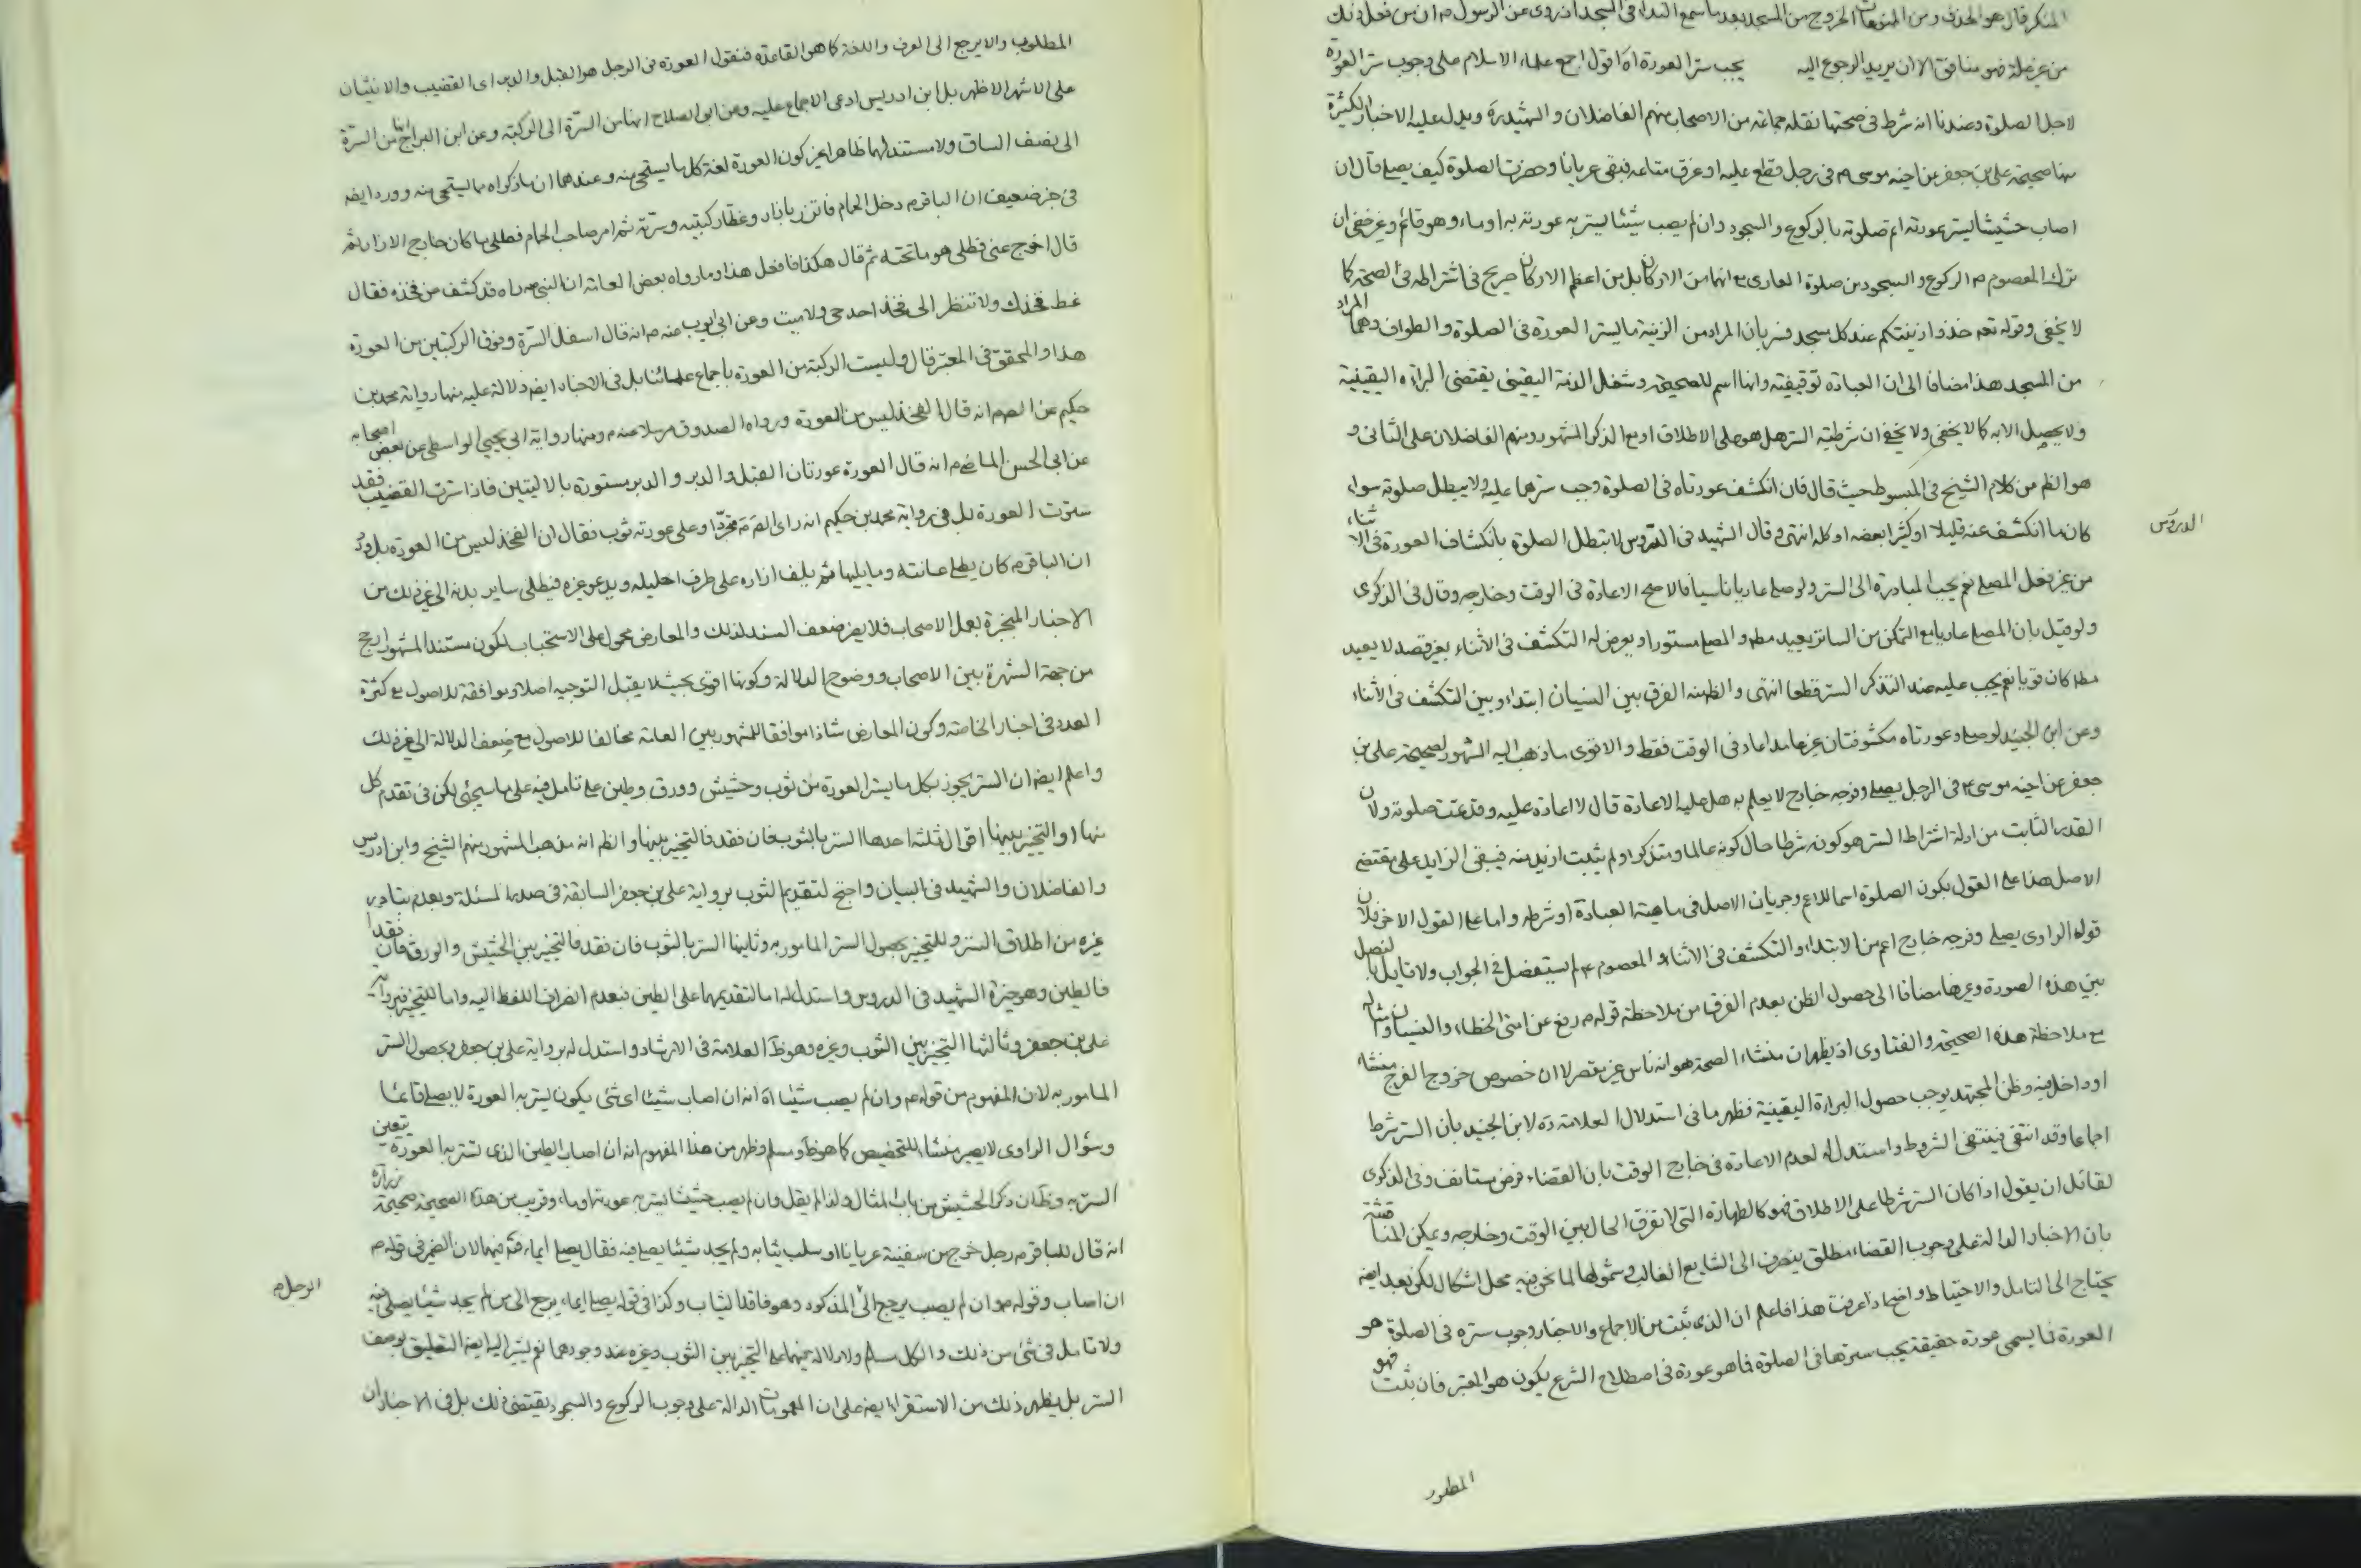 المنكر قال هو الحذف ومن المنوعات الخروج من المسجد بعد ما سمع النداء في المسجد اذ روى عن الرسول ص ان من فعل ذلك
من غير علة فهو منافق الا ان يريد الرجوع اليه يجب ستر العورة اه اقول اجمع علماء الاسلام على وجوب ستر العورة
لاجل الصلوة وعندنا انه شرط في صحتها نقله جماعة من الاصحاب منهم الفاضلان و الشهيد ره ويدل عليه الاخبار الكثيرة
منها صحيحة على بن جعفر عن اخيه موسى ع في رجل قطع عليه او غرق متاعه فبقى عريانا وحضرت الصلوة كيف يصلى قال ان
اصاب حشيشا يستر عورته اتم صلوته بالركوع و السجود وان لم يصب شيئا يستر به عورته به اوماء وهو قائم وغير خفى ان
ترك المعصوم ع الركوع و السجود من صلوة العارى مع انهما من الاركان بل من اعظم الاركان صريح في اشتراطه في الصحة كما
لا يخفى وقوله تعه خذوا زينتكم عند كل مسجد فسر بان المراد من الزينة ما يستر العورة في الصلوة و الطواف وهما المراد
من المسجد هذا مضافا الى ان العبادة توقيفية وانها اسم للصحيحة وشغل الذمة اليقينى يقتضى البراءة اليقينية
ولا يحصل الا به كما لا يخفى ولا يخفى ان شرطية الستر هل هو على الاطلاق او مع الذكر المشهور ومنهم الفاضلان على الثانى و
هو الظم من كلام الشيخ في المبسوط حيث قال فان انكشف عورتاه في الصلوة وجب سترهما عليه ولا يبطل صلوته سواء
كان ما انكشف عنه قليلا او كثيرا بعضه او كله انتهى وقال الشهيد في الدروس لا تبطل الصلوة بانكشاف العورة في الاثناء
الدروس
من غير فعل المصلى نعم يجب المبادرة الى الستر ولو صلى عاريا ناسيا فالاصح الاعادة في الوقت وخارجه وقال في الذكرى
ولو قيل بان المصلى عاريا مع التمكن من الساتر يعيد مطم و المصلى مستورا ويعرض له التكشف في الاثناء بغير قصد لا يعيد
مطم كان قويا نعم يجب عليه عند التذكر الستر قطعا انتهى و الظم منه الفرق بين النسيان ابتداء وبين التكشف في الاثناء
وعن ابن الجنيد لو صلى وعورتاه مكشوفتان غير عامد اعاد في الوقت فقط و الاقوى ما ذهب اليه المشهور لصحيحة على بن
جعفر عن اخيه موسى ع في الرجل يصلى وفرجه خارج لا يعلم به هل عليه الاعادة قال لا اعادة عليه وقد تمت صلوته ولان
القدر الثابت من ادلة اشتراط الستر هو كونه شرطا حال كونه عالما ومتذكرا ولم يثبت ازيد منه فيبقى الزايد على مقتضى
الاصل هذا على القول بكون الصلوة اسما للاعم وجريان الاصل في ماهية العبادة او شرطه و اما على القول الاخر فلان
قوله الراوى يصلى وفرجه خارج اعم من الابتداء و التكشف في الاثناء و المعصوم ع لم يستفصل في الجواب ولا قايل بالفصل
بين هذه الصورة وغيرها مضافا الى حصول الظن بعدم الفرق من ملاحظة قوله ص رفع عن امتى الخطاء و النسيان وامثاله
مع ملاحظة هذه الصحيحة و الفتاوى اذ يظهر ان منشاء الصحة هو انه ناس غير مقصر لا ان خصوص خروج الفرج منشاء
او داخل فيه وظن المجتهد يوجب حصول البراءة اليقينية فظهر ما في استدلال العلامة ره لابن الجنيد بان الستر شرط
اجماعا وقد انتفى فينتفى المشروط و استدل له لعدم الاعادة في خارج الوقت بان القضاء فرض مستانف وفي الذكرى
لقائل ان يقول اذا كان الستر شرطا على الاطلاق فهو كالطهارة التى لا تفرق الحال بين الوقت وخارجه ويمكن المناقشة
بان الاخبار الدالة على وجوب القضاء مطلق ينصرف الى الشايع الغالب وشمولها لما نحن فيه محل اشكال لكن بعد ايضه
يحتاج الى التامل و الاحتياط واضح اذا عرفت هذا فاعلم ان الذى ثبت من الاجماع و الاخبار وجوب ستره في الصلوة هو
العورة فما يسمى عورة حقيقة يجب سترها في الصلوة فما هو عورة في اصطلاح الشرع يكون هو المعتبر فان ثبت فهو
المطلوب
المطلوب والا يرجع الى العرف و اللغة كما هو القاعدة فنقول العورة في الرجل هو القبل و الدبر اى القضيب و الانثيان
على الاشهر الاظهر بل ابن ادريس ادعى الاجماع عليه وعن ابى الصلاح انها من السرة الى الركبة وعن ابن البراج انها من السرة
الى نصف الساق ولا مستند لهما ظاهرا غير كون العورة لغة كل ما يستحى منه وعندهما ان ما ذكراه مما يستحى منه وورد ايضه
في خبر ضعيف ان الباقر ع دخل الحمام فاتزر بازار وغطا ركبتيه وسرته ثم امر صاحب الحمام فطلى ما كان خارج الازار ثم
قال اخرج عنى فطلى هو ما تحته ثم قال هكذا فافعل هذا وما رواه بعض العامة ان النبى ص راه قد كشف عن فخذه فقال
غط فخذك ولا تنظر الى فخذ احد حى ولا ميت وعن ابى ايوب عنه ص انه قال اسفل السرة وفوق الركبتين من العورة
هذا و المحقق في المعتبر قال وليست الركبة من العورة باجماع علمائنا بل في الاخبار ايضه دلالة عليه منها رواية محمد بن
حكيم عن الصم انه قال الفخذ ليس من العورة ورواه الصدوق مرسلا عنه ع ومنها رواية ابى يحيى الواسطى عن بعض اصحابه
عن ابى الحسن الماضى ع انه قال العورة عورتان القبل و الدبر و الدبر مستورة بالاليتين فاذا سترت القضيب فقد
سترت العورة بل في رواية محمد بن حكيم انه راى الصم متجردا وعلى عورته ثوب فقال ان الفخذ ليس من العورة بل ورد
ان الباقر ع كان يطلى عانته وما يليها ثم يلف ازاره على طرف احليله ويدعو غيره فيطلى ساير بدنه الى غير ذلك من
الاخبار المنجبرة بعمل الاصحاب فلا يضر ضعف السند لذلك و المعارض محمول على الاستحباب لكون مستند المشهور ارجح
من جهة الشهرة بين الاصحاب ووضوح الدلالة وكونها اقوى بحيث لا يقبل التوجيه اصلا وموافقة للاصول مع كثرة
العدد في اخبار الخاصة وكون المعارض شاذا موافقا للمشهور بين العامة مخالفا للاصول مع ضعف الدلالة الى غير ذلك
و اعلم ايضه ان الستر يجوز بكل ما يستر العورة من ثوب وحشيش وورق وطين على تامل فيه على ما سيجئ لكن في تقدم كل
منها او التخيير بينها اقوال ثلثة احدها الستر بالثوب فان فقد فالتخيير بينها و الظم انه مذهب المشهور منهم الشيخ و ابن ادريس
و الفاضلان و الشهيد في البيان و احتج لتقديم الثوب برواية على بن جعفر السابقة في صدر المسئلة وبعدم تبادر
غيره من اطلاق الستر وللتخيير بحصول الستر المامور به وثانيها الستر بالثوب فان فقد فالتخيير بين الحشيش و الورق فان فقدا
فالطين وهو خيرة الشهيد في الدروس و استدل له اما لتقديمهما على الطين فبعدم انصراف اللفظ اليه و اما للتخيير فبرواية
على بن جعفر وثالثها التخيير بين الثوب وغيره وهو ظ العلامة في الارشاد و استدل له برواية على بن جعفر وبحصول الستر
المامور به لان المفهوم من قوله ع وان لم يصب شيئا اه انه ان اصاب شيئا اى شئ يكون يستر به العورة لا يصلى قائما
وسؤال الراوى لا يصير منشاء للتخصيص كما هو ظ ومسلم وظهر من هذا المفهوم انه ان اصاب الطين الذى تستر به العورة يتعين
الستر به وظ ان ذكر الحشيش من باب المثال ولذا لم يقل وان لم يصب حشيشا يستر به عورته اوماء وقريب من هذه الصحيحة صحيحة زرارة
انه قال للباقر ع رجل خرج من سفينة عريانا او سلب ثيابه ولم يجد شيئا يصلى فيه فقال يصلى ايماء فتم فيهما لان الضمير في قوله ع
ان اصاب وقوله ص وان لم يصب يرجع الى المذكور وهو فاقد الثياب وكذا في قوله يصلى ايماء يرجع الى من لم يجد شيئا يصلى فيه
الرجل م
ولا تامل في شئ من ذلك و الكل مسلم ولا دلالة فيهما على التخيير بين الثوب وغيره عند وجودهما نعم يشير اليه ايضه التعليق بوصف
الستر بل يظهر ذلك من الاستقراء ايضه على ان العمومات الدالة على وجوب الركوع و السجود يقتضى ذلك بل في الاخبار ان